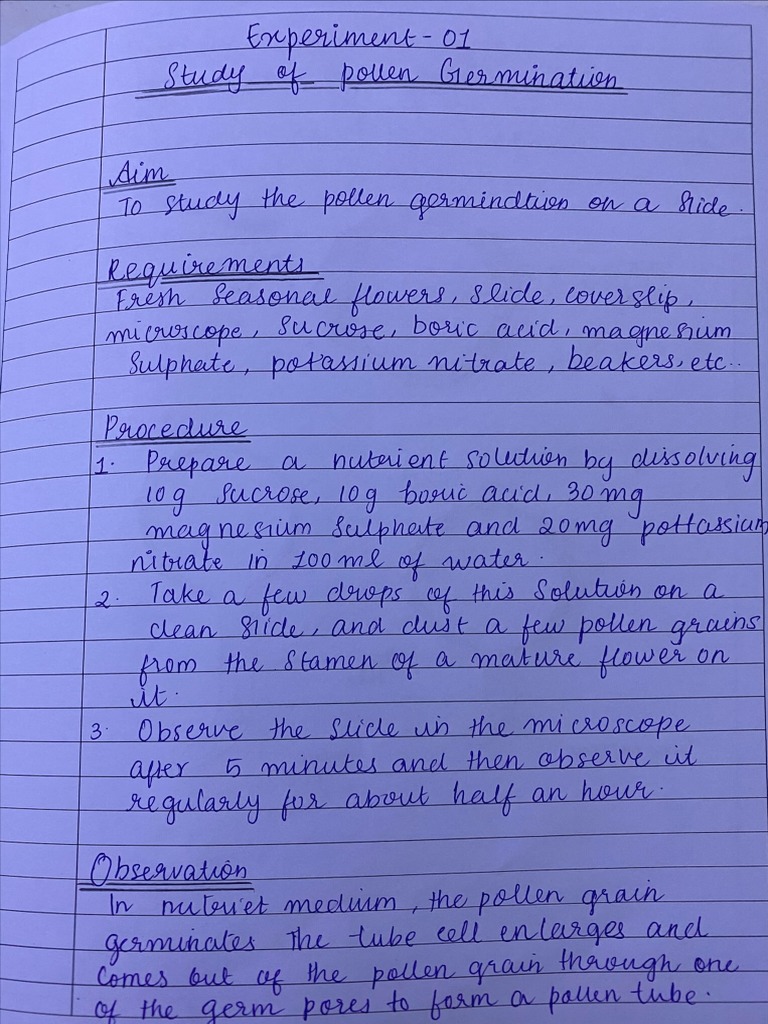 Experiment - 01
Study of pollen Germination
Aim
To study the pollen germindtion on a slide.
Requirements
Fresh seasonal flowers, slide, coverslip,
microscope, sucrose, boric acid, magnesium
sulphate, potassium nitrate, beakers, etc..
Procedure
1. Prepare a nutrient solution by dissolving
10g sucrose, 10g boric acid, 30 mg
magnesium sulphate and 20mg pottassium
nitrate in 100 ml of water.
2. Take a few drops of this solution on a
clean slide, and dust a few pollen grains
from the stamen of a mature flower on
it.
3. Observe the slide in the microscope
after 5 minutes and then observe it
regularly for about half an hour.
Observation
In nutriet medium, the pollen grain
germinates The tube cell enlarges and
comes out of the pollen grain through one
of the germ pores to form a pollen tube.